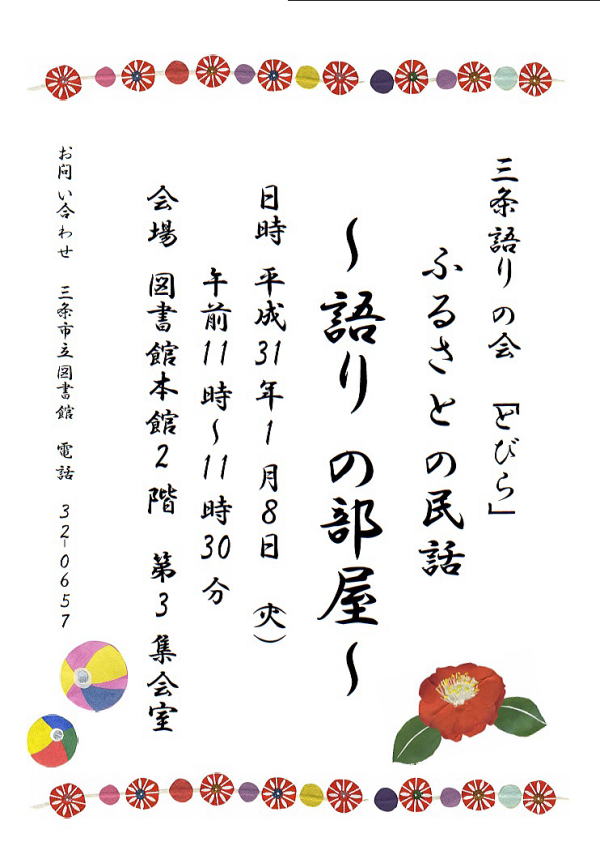 三条語りの会 「とびら」
ふるさとの民話
～語りの部屋～
日時 平成31年1月8日 (火)
午前11時～11時30分
会場 図書館本館2階 第3集会室
お問い合わせ 三条市立図書館 電話 32-0657